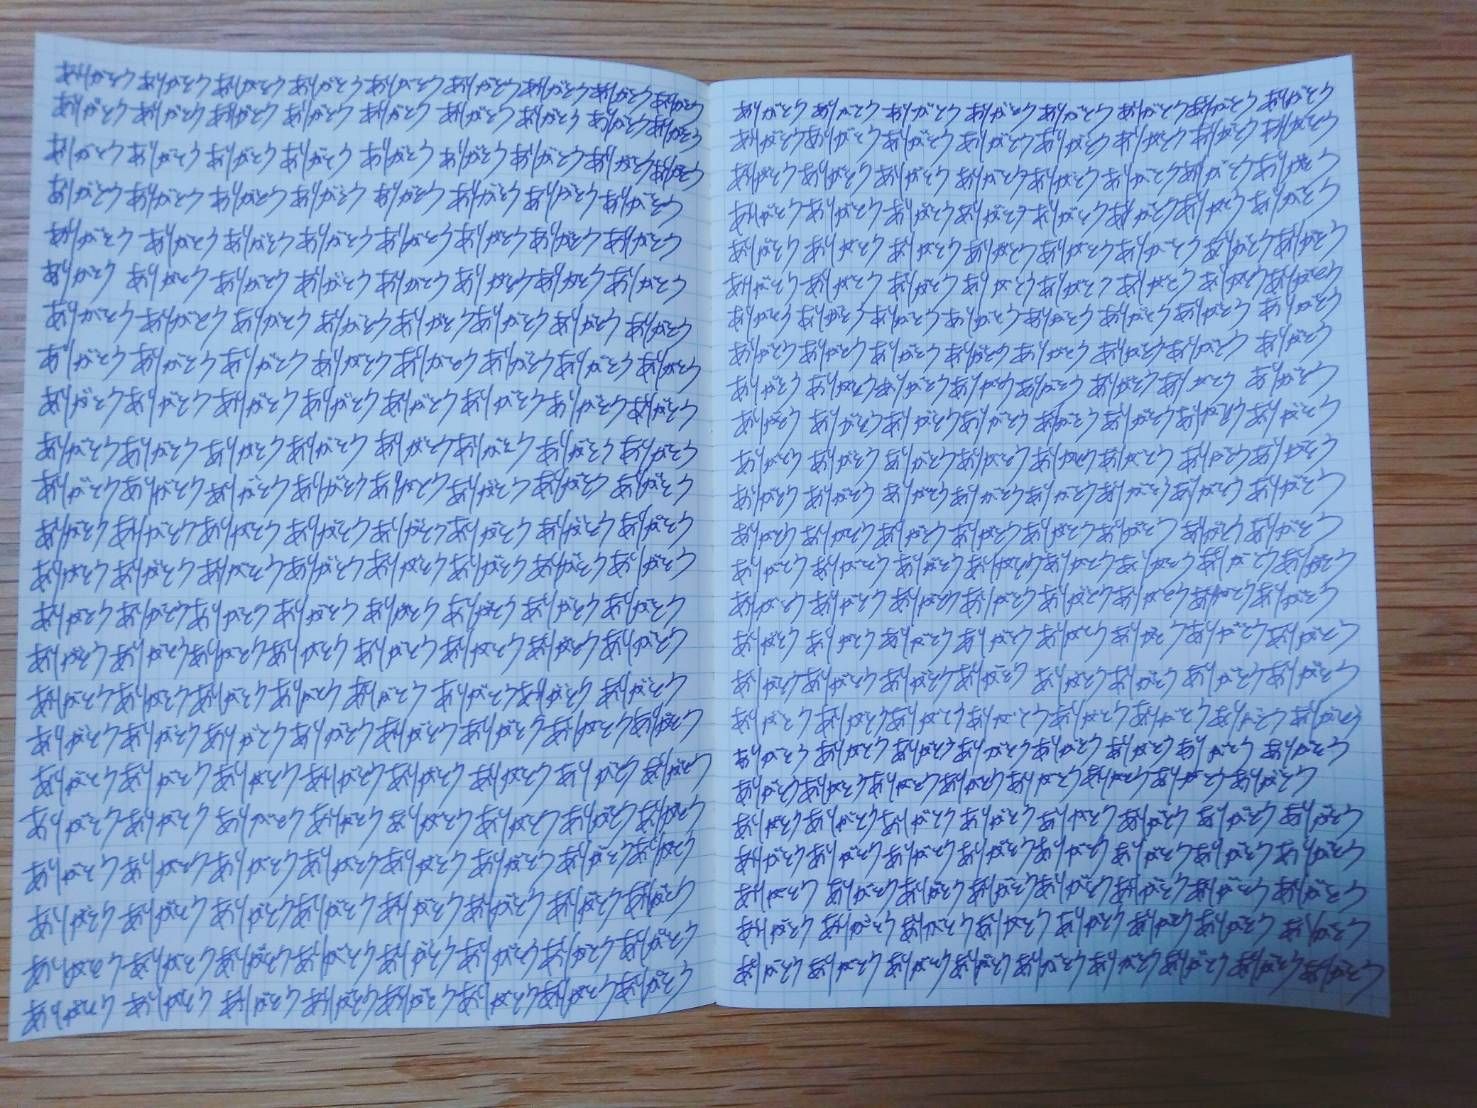 ありがとう ありがとう ありがとう ありがとう ありがとう ありがとう ありがとう ありがとう ありがとう
ありがとう ありがとう ありがとう ありがとう ありがとう ありがとう ありがとう ありがとう ありがとう
ありがとう ありがとう ありがとう ありがとう ありがとう ありがとう ありがとう ありがとう ありがとう
ありがとう ありがとう ありがとう ありがとう ありがとう ありがとう ありがとう ありがとう
ありがとう ありがとう ありがとう ありがとう ありがとう ありがとう ありがとう ありがとう
ありがとう ありがとう ありがとう ありがとう ありがとう ありがとう ありがとう ありがとう
ありがとう ありがとう ありがとう ありがとう ありがとう ありがとう ありがとう ありがとう
ありがとう ありがとう ありがとう ありがとう ありがとう ありがとう ありがとう ありがとう
ありがとう ありがとう ありがとう ありがとう ありがとう ありがとう ありがとう ありがとう
ありがとう ありがとう ありがとう ありがとう ありがとう ありがとう ありがとう ありがとう
ありがとう ありがとう ありがとう ありがとう ありがとう ありがとう ありがとう ありがとう
ありがとう ありがとう ありがとう ありがとう ありがとう ありがとう ありがとう ありがとう
ありがとう ありがとう ありがとう ありがとう ありがとう ありがとう ありがとう ありがとう
ありがとう ありがとう ありがとう ありがとう ありがとう ありがとう ありがとう ありがとう
ありがとう ありがとう ありがとう ありがとう ありがとう ありがとう ありがとう ありがとう
ありがとう ありがとう ありがとう ありがとう ありがとう ありがとう ありがとう ありがとう
ありがとう ありがとう ありがとう ありがとう ありがとう ありがとう ありがとう ありがとう
ありがとう ありがとう ありがとう ありがとう ありがとう ありがとう ありがとう ありがとう
ありがとう ありがとう ありがとう ありがとう ありがとう ありがとう ありがとう ありがとう
ありがとう ありがとう ありがとう ありがとう ありがとう ありがとう ありがとう ありがとう
ありがとう ありがとう ありがとう ありがとう ありがとう ありがとう ありがとう ありがとう
ありがとう ありがとう ありがとう ありがとう ありがとう ありがとう ありがとう ありがとう
ありがとう ありがとう ありがとう ありがとう ありがとう ありがとう ありがとう ありがとう
ありがとう ありがとう ありがとう ありがとう ありがとう ありがとう ありがとう ありがとう
ありがとう ありがとう ありがとう ありがとう ありがとう ありがとう ありがとう ありがとう
ありがとう ありがとう ありがとう ありがとう ありがとう ありがとう ありがとう ありがとう
ありがとう ありがとう ありがとう ありがとう ありがとう ありがとう ありがとう ありがとう
ありがとう ありがとう ありがとう ありがとう ありがとう ありがとう ありがとう ありがとう
ありがとう ありがとう ありがとう ありがとう ありがとう ありがとう ありがとう ありがとう
ありがとう ありがとう ありがとう ありがとう ありがとう ありがとう ありがとう ありがとう
ありがとう ありがとう ありがとう ありがとう ありがとう ありがとう ありがとう ありがとう
ありがとう ありがとう ありがとう ありがとう ありがとう ありがとう ありがとう ありがとう
ありがとう ありがとう ありがとう ありがとう ありがとう ありがとう ありがとう ありがとう
ありがとう ありがとう ありがとう ありがとう ありがとう ありがとう ありがとう ありがとう
ありがとう ありがとう ありがとう ありがとう ありがとう ありがとう ありがとう ありがとう
ありがとう ありがとう ありがとう ありがとう ありがとう ありがとう ありがとう ありがとう
ありがとう ありがとう ありがとう ありがとう ありがとう ありがとう ありがとう ありがとう
ありがとう ありがとう ありがとう ありがとう ありがとう ありがとう ありがとう ありがとう
ありがとう ありがとう ありがとう ありがとう ありがとう ありがとう ありがとう ありがとう
ありがとう ありがとう ありがとう ありがとう ありがとう ありがとう ありがとう ありがとう
ありがとう ありがとう ありがとう ありがとう ありがとう ありがとう ありがとう ありがとう
ありがとう ありがとう ありがとう ありがとう ありがとう ありがとう ありがとう ありがとう
ありがとう ありがとう ありがとう ありがとう ありがとう ありがとう ありがとう ありがとう
ありがとう ありがとう ありがとう ありがとう ありがとう ありがとう ありがとう ありがとう
ありがとう ありがとう ありがとう ありがとう ありがとう ありがとう ありがとう ありがとう
ありがとう ありがとう ありがとう ありがとう ありがとう ありがとう ありがとう ありがとう
ありがとう ありがとう ありがとう ありがとう ありがとう ありがとう ありがとう ありがとう
ありがとう ありがとう ありがとう ありがとう ありがとう ありがとう ありがとう ありがとう ありがとう